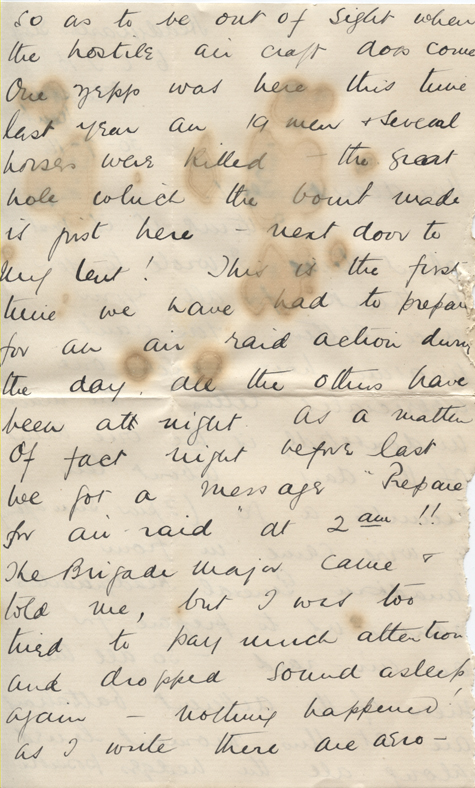 So as to be out of sight when
the hostile air craft does come
One zepp was here this time
last year an 19 men + several
horses were killed – the great
hole which the bomb made
is just here – next door to
my tent! This is the first
time we have had to prepare
for an air raid action during
the day, all the others have
been at night. As a matter
of fact night before last
we got a message "Prepare
for air raid" at 2 am !!
The Brigade Major came +
told me, but I was too
tired to pay much attention
and dropped sound asleep
again – nothing happened!
as I write there are aero–